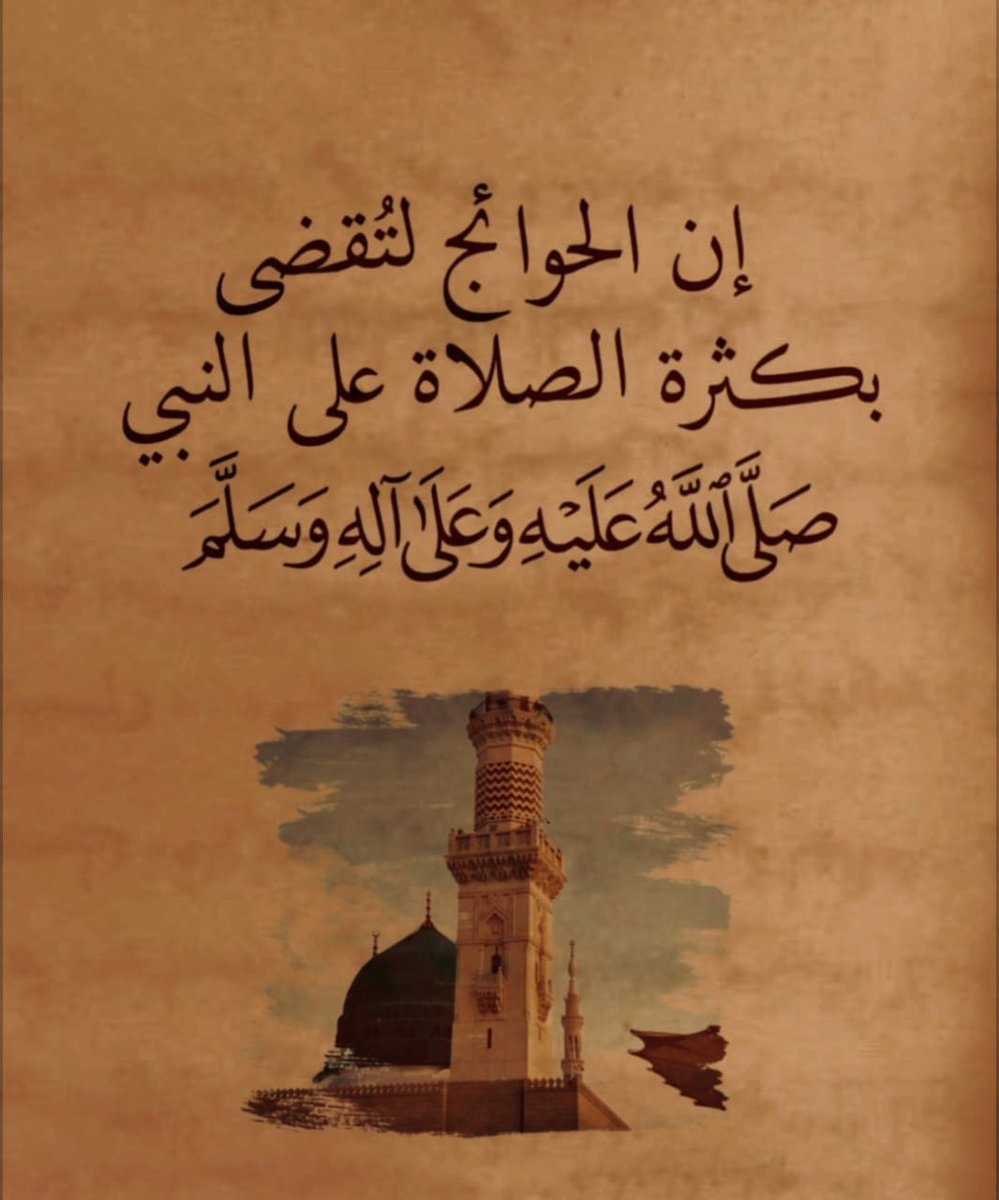 إن الحوائج لتُقضى
بكثرة الصلاة على النبي
صَلَّى ٱللَّهُ عَلَيْهِ وَعَلَىٰ آلِهِ وَسَلَّمَ